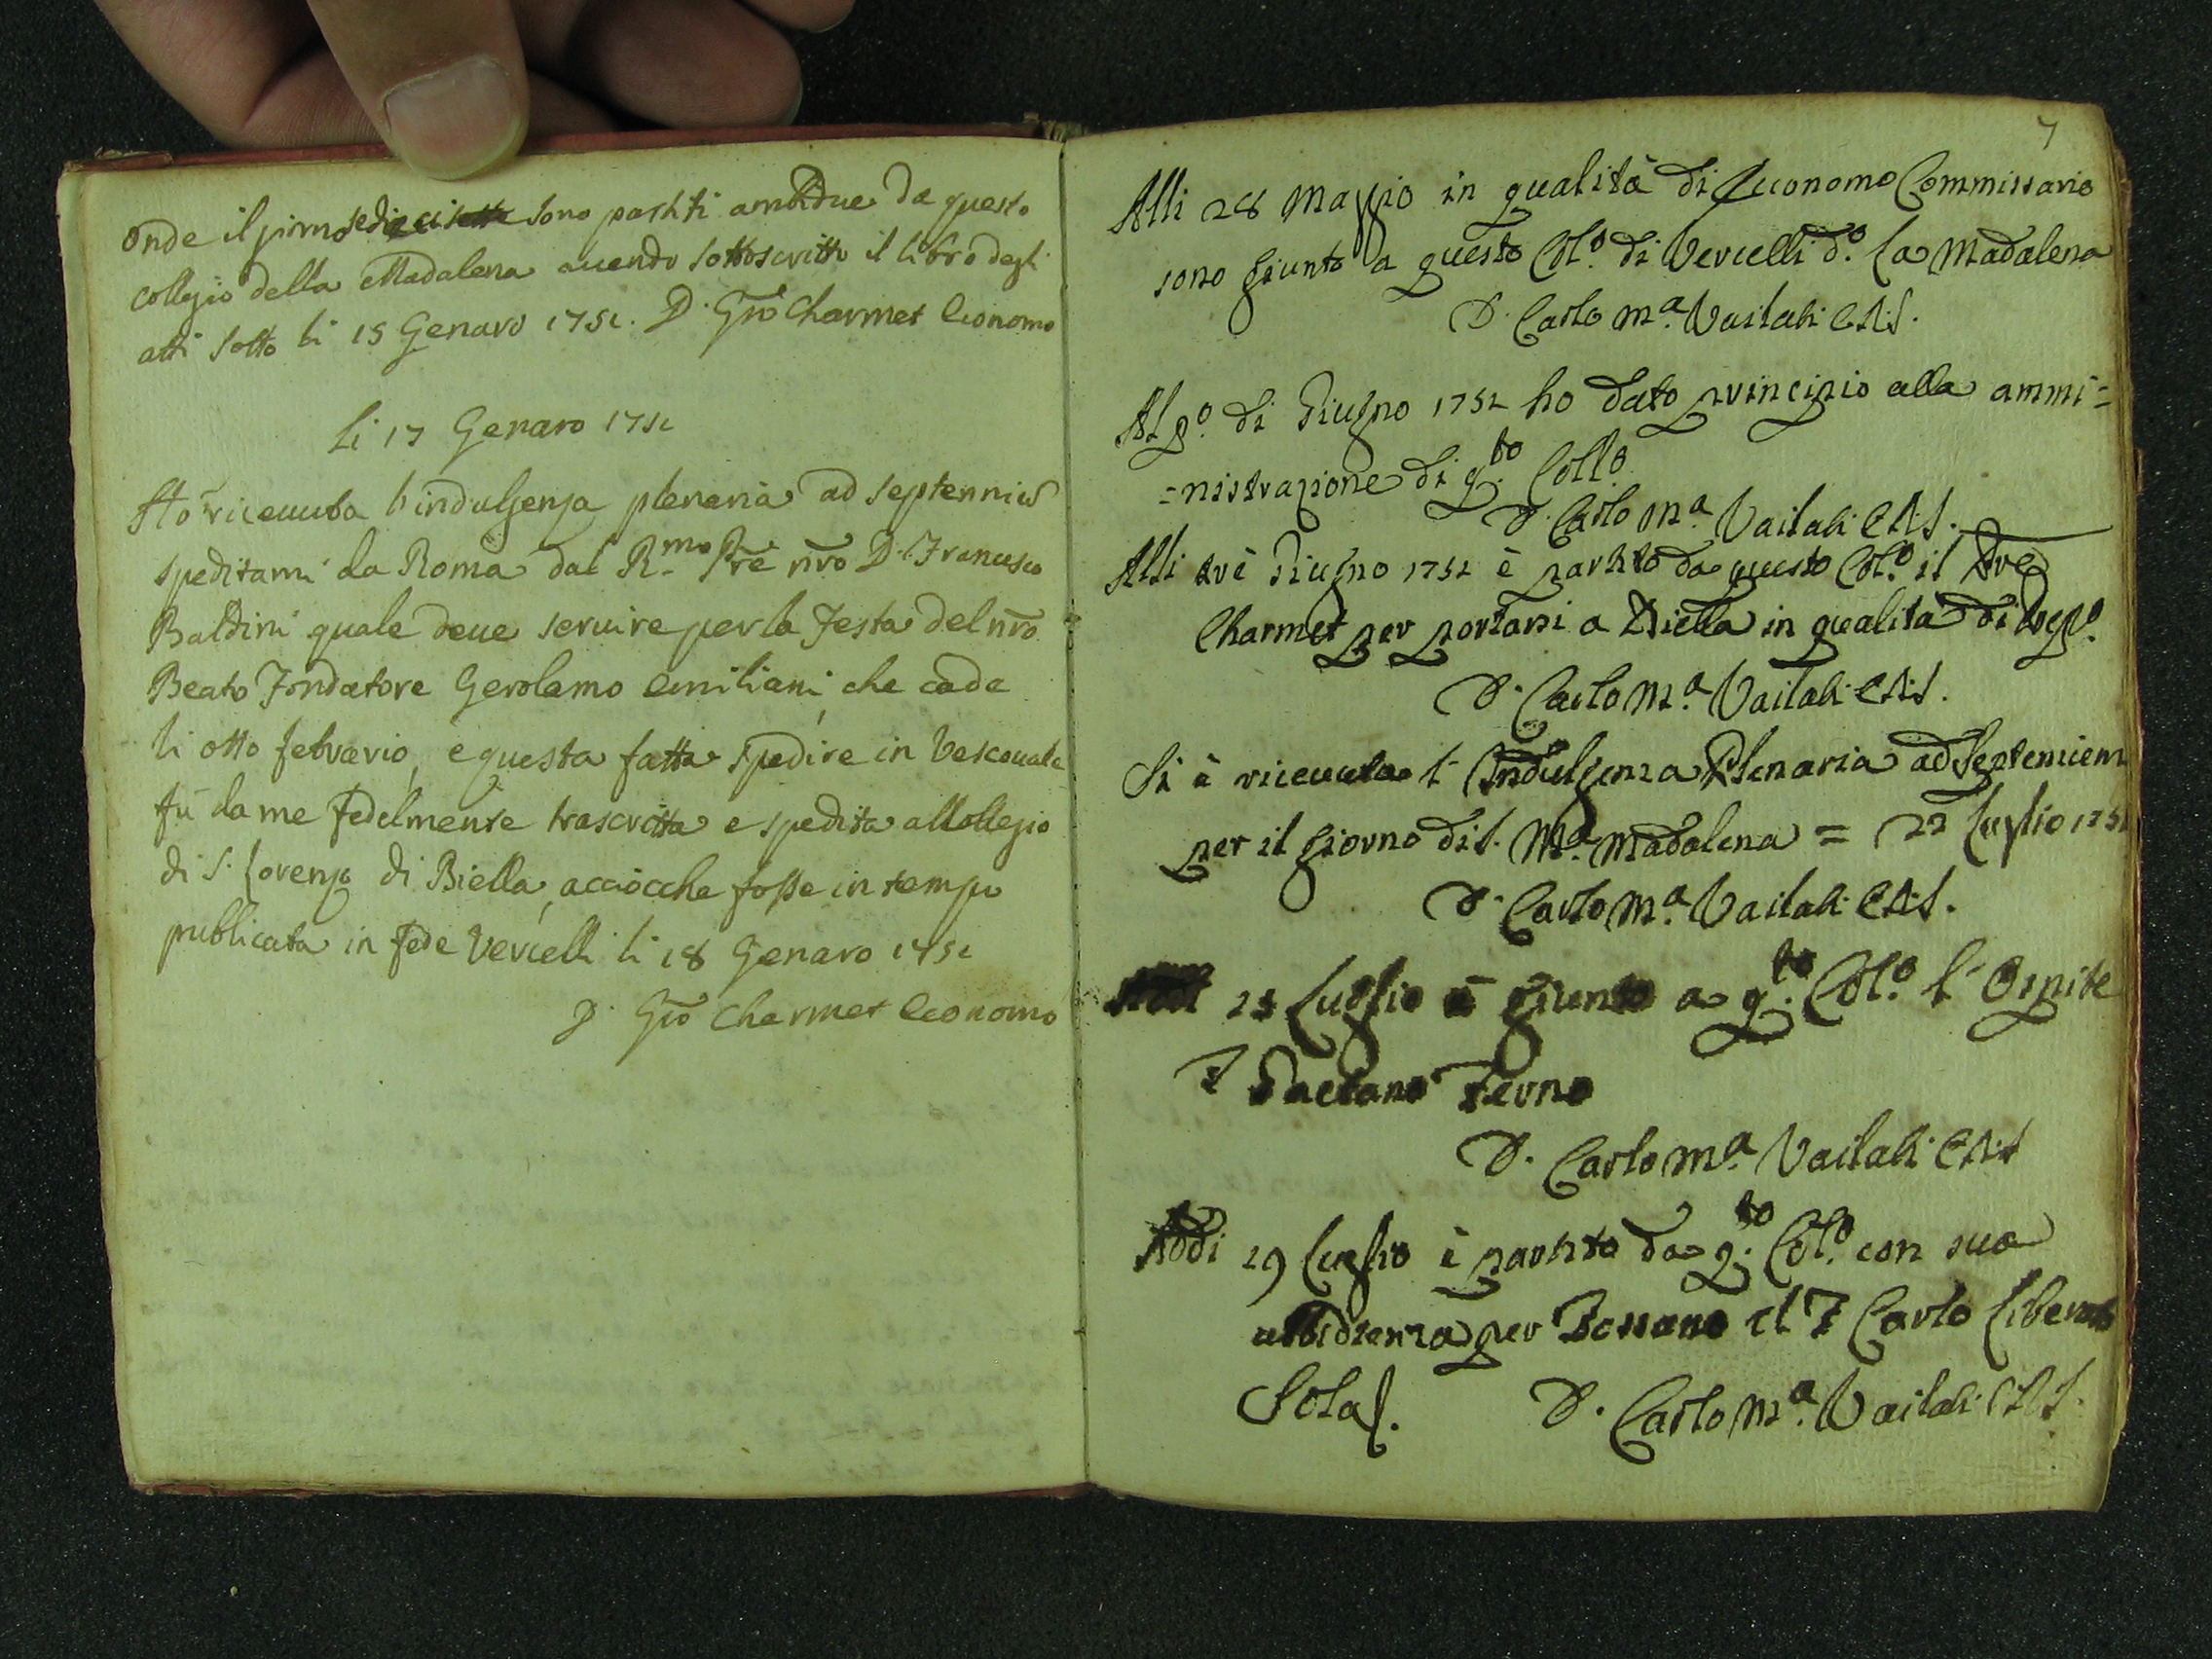 onde il giorno sedici sono partiti ambidue da questo
collegio della Madalena auendo sottoscritto il libro degli
atti sotto li 15 Genaro 1752. D. Gio Charmet Economo
li 17 Genaro 1752
Ho riceuuta l'indulgenza plenaria ad septenniu
speditami da Roma dal R.mo Pre nro D. Francesco
Baldini quale deue seruire per la festa del nro
Beato Fondatore Gerolamo Emiliani, che cade
li otto febrario, e questa fatta spedire in Vescouale
fù da me fedelmente trascritta e spedita al Collegio
di S. Lorenzo di Biella, acciocche fosse in tempo
publicata in fede Vercelli li 18 Genaro 1752
D. Gio Charmet Economo
7
Alli 28 Maggio in qualità di Economo Commissario
sono giunto a questo Col.o di Vercelli d.o la Madalena
D. Carlo M.a Vailati C.R.S.
Al p.o di Giugno 1752 ho dato principio alla ammi=
=nistrazione di q.to Coll.o
D. Carlo M.a Vailati C.R.S.
Alli trè Giugno 1752 è partito da questo Col.o il Pre
Charmet per portarsi a Biella in qualità di
D. Carlo M.a Vailati C.R.S.
Si è riceuuta l'Indulgenza Plenaria ad Septenniem
per il giorno di S. M.a Madalena = 22 Luglio 1752
D. Carlo M.a Vailati C.R.S.
25 Luglio è giunto a q.to Col.o l'Ospite
F Gaetano Ferno
D. Carlo M.a Vailati C.R.S
Addi 29 Luglio è partito da q.to Col.o con sua
ubbidienza per Fossano il F Carlo Liberato
Sola D. Carlo M.a Vailati C.R.S.